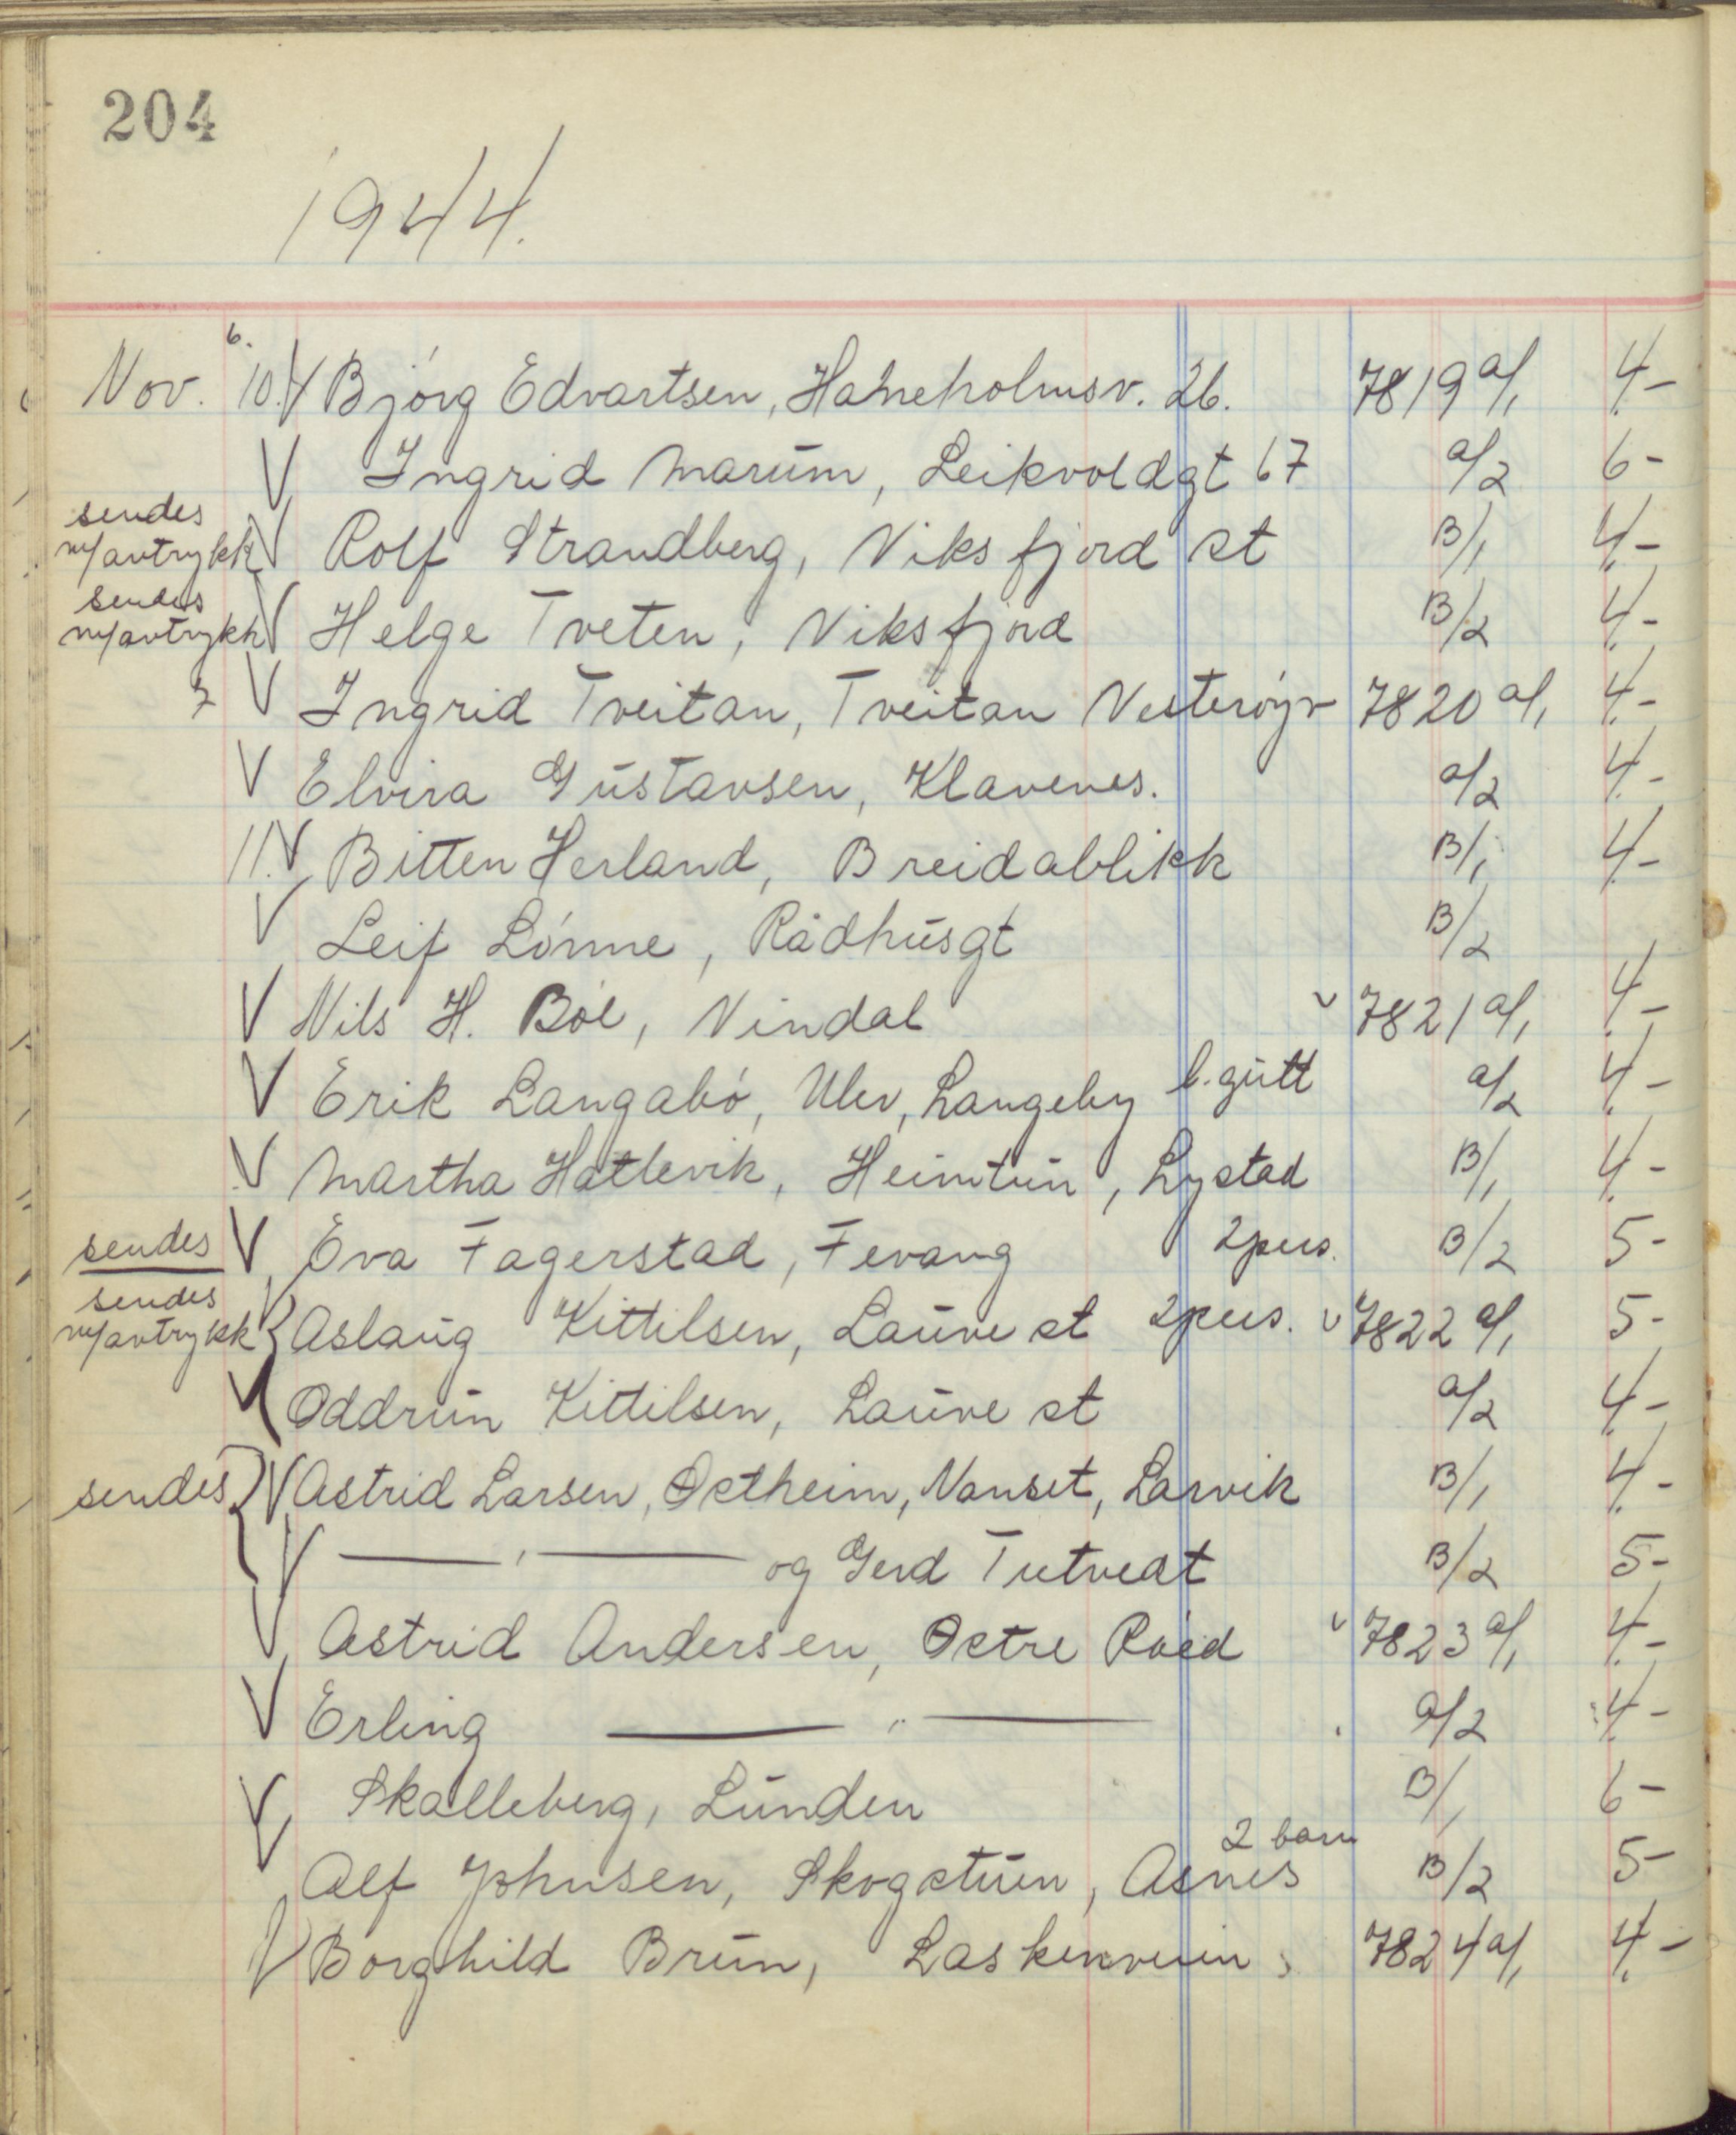 204
1944.
6.
Nov. 10. V Bjørg Edvartsen, Hahneholmsv. 26. 7819 a/1 4-
V Ingrid Marum, Leikvoldgt 67 a/2 6-
sendes
m/avtrykk V Rolf Strandberg, Viksfjord st B/1 4-
sendes
m/avtrykk V Helge Tveten, Viksfjord B/2 4-
V Ingrid Tveitan, Tveitan Vesterøyv 7820 a/1 4-
V Elvira Gustavsen, Klavenes. a/2 4-
11. V Bitten Herland, Breidablikk B/1 4-
V Leif Lønne, Rådhusgt B/2
V Nils H. Bøe, Vindal v 7821 a/1 4-
V Erik Langabø, Ulev, Langeby l. gutt a/2 4-
V Martha Hatlevik, Heimtun, Lystad B/1 4-
sendes V Eva Fagerstad, Fevang 2pers. B/2 5-
sendes
m/avtrykk { Aslaug Kittilsen, Lauve st 2pers. v 7822 a/1 5-
V Oddrun Kittilsen, Lauve st a/2 4-
sendes } V Astrid Larsen, Østheim, Nanset, Larvik B/1 4-
V —— " —— og Gerd Tutvedt B/2 5-
V Astrid Andersen, Østre Råed v 7823 a/1 4-
V Erling —— " —— a/2 4-
V Skalleberg, Lunden B/1 6-
2 barn
V Alf Johnsen, Skogstuen, Asnes B/2 5-
V Borghild Brun, 7824 a/1 4-